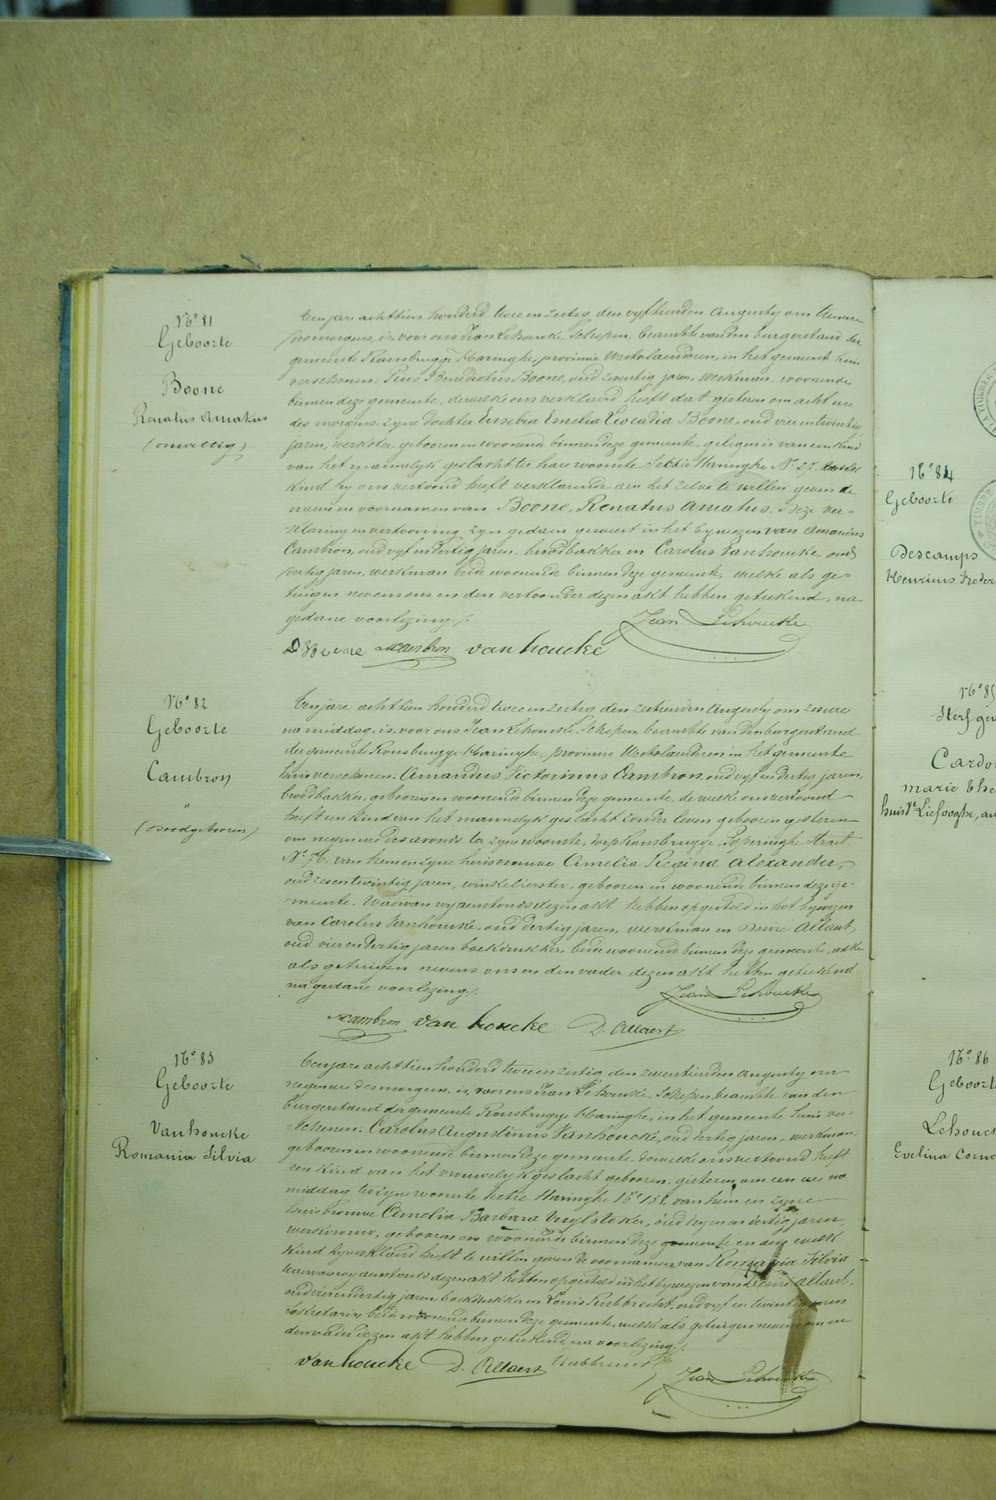 N.o 81
Geboorte
Boone
Renatus Amatus
(onwettig)
Een jare achttien honderd twee en zestig, den vyftienden Augusty om
voor ons Jean Lehoucke, Schepen, beambte van den burgerstand der
gemeente Rousbrugge Haringhe, provincie Westvlaenderen, in het gemeente huis
verschenen: Pius Benedictus Boone, oud zeventig jaren, werkman, woonende
binnen deze gemeente, dewelke ons verklaard heeft dat gisteren om acht ure
des morgens, zyne dochter Eusebia Emelia Leocadia Boone, oud vier en twintig
jaren, werkster, geboren en woonende binnen deze gemeente, gelegen is van een kind
van het mannelyk geslacht ter hare woonste Sectie Haringhe N.o 27. welk
kind hy ons vertoond heeft verklarende aen het zelve te willen geven de
naem en voornamen van Boone, Renatus Amatus. Deze ver-
klaring en vertooning zyn gedaen geweest in het bywezen van Amandus
Cambron, oud vyf en dertig jaren, broodbakker en Carolus Vanhoucke, oud
dertig jaren, werkman beide woonende binnen deze gemeente, welke als ge-
tuigen nevens ons en den vertoonder dezen akt hebben geteekend, na
gedane voorlezing.
Jean Lehoucke
Boone Acambron van houcke
N.o 82
Geboorte
Cambron
"
(Doodgeboren)
Een jare achttien honderd twee en zestig, den zestienden Augusty om zes ure
na middag, is voor ons Jean Lehoucke, Schepen beambte van den burgerstand
der gemeente Rousbrugge Haringhe, provincie Westvlaenderen in het gemeente
huis verschenen: Amandus Victorinus Cambron, oud vyf en dertig jaren,
broodbakker, geboren en woonende binnen deze gemeente, de welke ons vertoond
heeft een kind van het mannelyk geslacht zonder leven geboren gisteren
om negen ure des avonds ter zyne woonste, wyk Rousbrugge, straet
N.o 76. van hem en zyne huisvrouwe Amelia Regina Alexander,
oud zes en twintig jaren, winkelierster, geboren en woonende binnen deze ge-
meente. Waervan wy aenstonds dezen akt hebben opgesteld in het bywezen
van Carolus Vanhoucke, oud dertig jaren, werkman en Désiré Allaert,
oud vier en dertig jaren boekdrukker, beide woonende binnen deze gemeente, welke
als getuigen nevens ons en den vader dezen akt hebben geteekend
na gedane voorlezing.
Jean Lehoucke
Acambron van houcke D. Allaert
N.o 83
Geboorte
Vanhoucke
Romania Silvia
Een jare achttien honderd twee en zestig den zeventienden Augusty om
negen ure des morgens, is voor ons Jean Lehoucke Schepen beambte van den
burgerstand der gemeente Rousbrugge Haringhe, in het gemeente huis ver-
schenen: Carolus Augustinus Vanhoucke, oud dertig jaren, werkman,
geboren en woonende binnen deze gemeente, dewelke ons vertoond heeft
een kind van het vrouwelyk geslacht geboren gisteren om een ure na
middag, ter zyne woonste Sectie Haringhe N.o 132. van hem en zyne
huisvrouwe Amelia Barbara oud en dertig jaren,
werkvrouw, geboren en woonende binnen deze gemeente, en aen welk
kind hy verklaerd heeft te willen geven de voornamen van Romania Silvia
waervan wy aenstonds dezen akt hebben opgesteld in het bywezen van Désiré Allaert,
oud vier en dertig jaren, boekdrukker en Louis oud vyf en twintig jaren
Sekretaris, beide woonende binnen deze gemeente, welke als getuigen nevens ons en
den vader dezen akt hebben geteekend, na voorlezing.
van houcke D. Allaert
Jean Lehoucke
N.o 84
Geboorte
Descamps
Henricus
N.o 85
Sterf
Cardo
marie
huisv.e Liefooghe,
N.o 86
Geboorte
Lehouck
Evelina